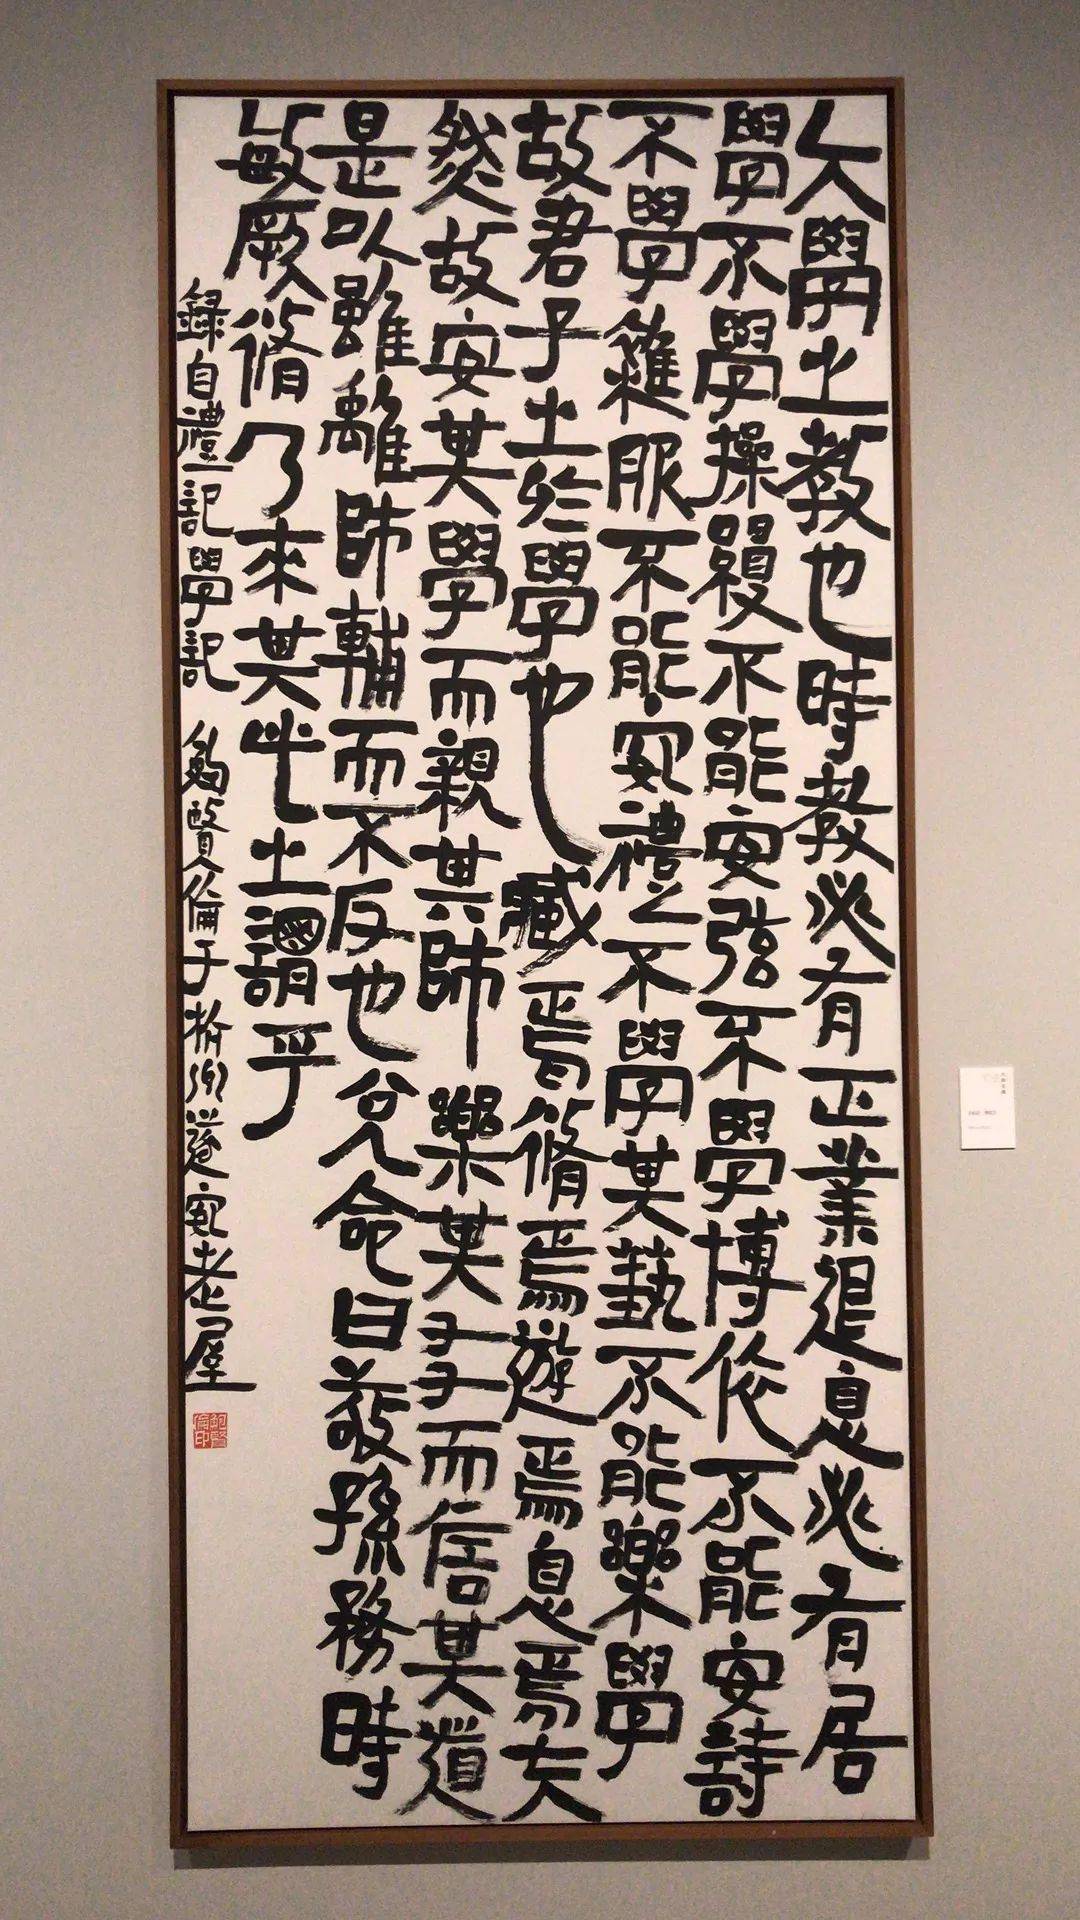 大學之教也時教必有正業退息必有居
學不學操縵不能安弦不學博依不能安詩
不學雜服不能安禮不學其藝不能樂學
故君子之於學也臧焉脩焉遊焉息焉夫
然故安其學而親其師樂其友而信其道
是以雖離師輔而不反也兌命曰敬孫務時
敏厥脩乃來其此之謂乎
錄自禮記學記 鮑賢倫于 老屋
鮑賢倫印